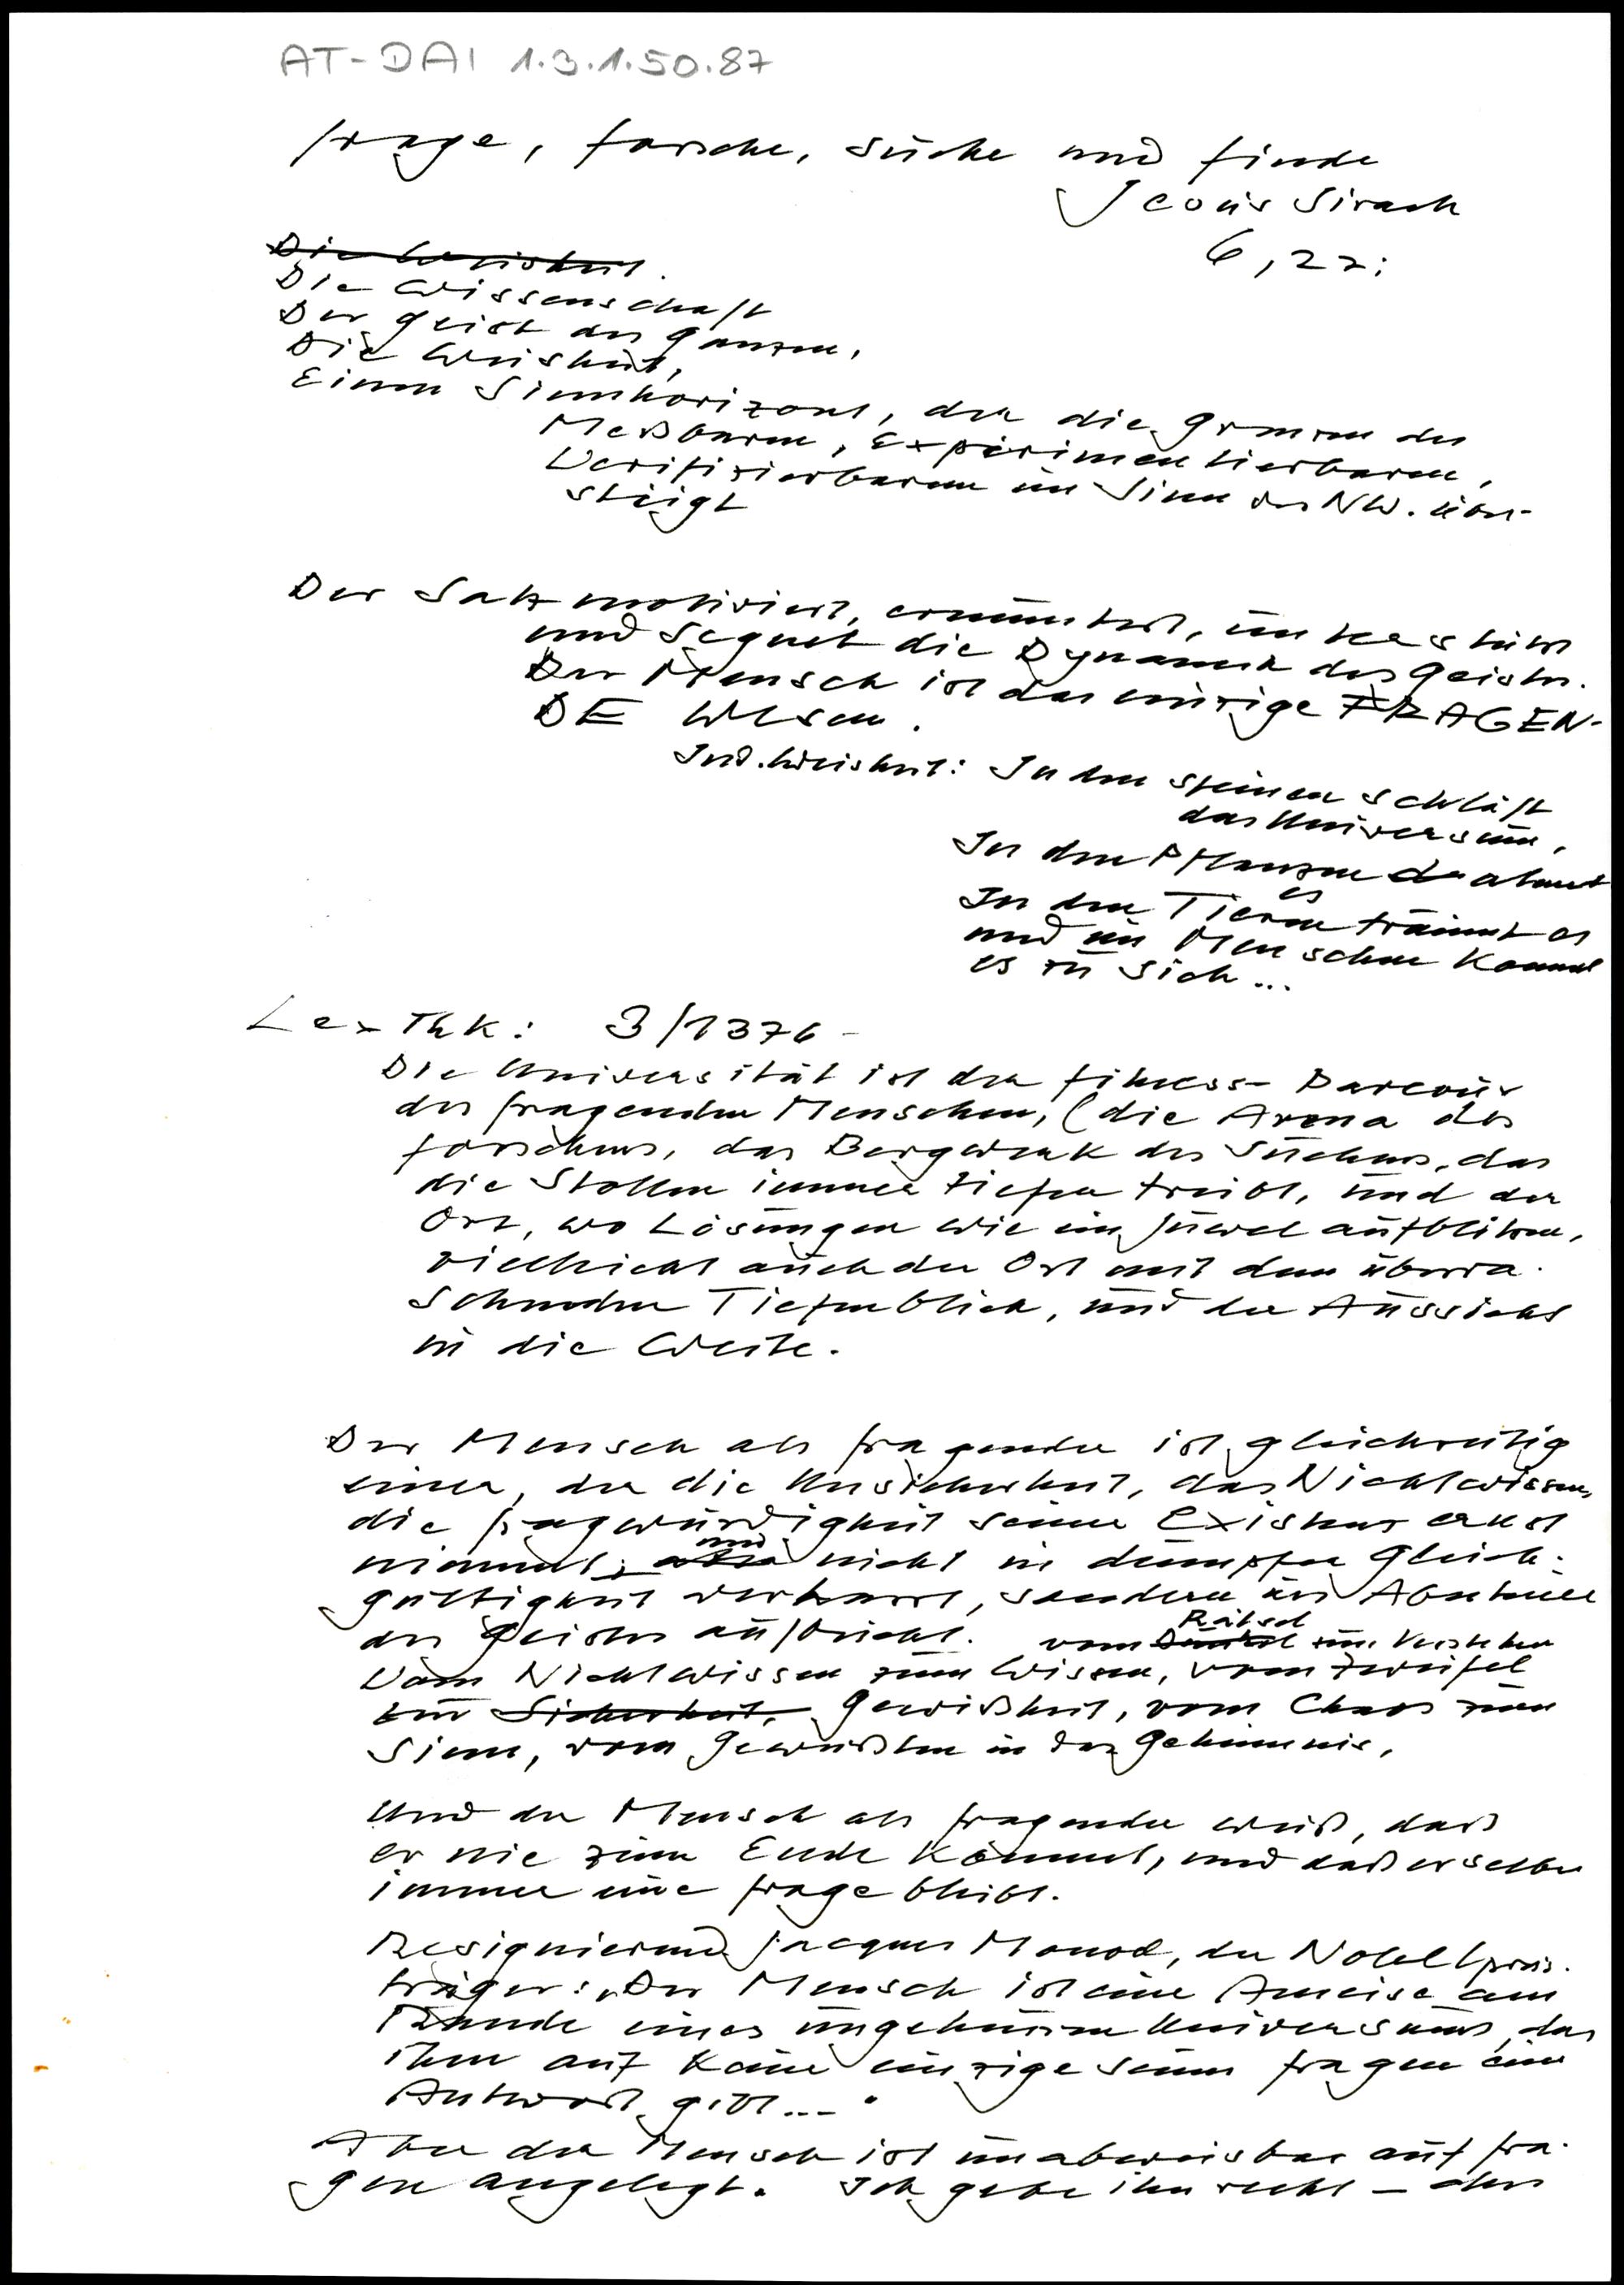 AT-DAI 1.3.1.50.87
Frage, forsche, suche und finde
Jesus Sirach
6,27:
Die Weisheit.
Die Wissenschaft
Der Geist des Ganzen,
Die Weisheit,
Einen Sinnhorizont, der die Grenzen des
Meßbaren, Experimentierbaren,
Verifizierbaren im Sinn der NW. über-
steigt
Der Satz motiviert, ermuntert,
und segnet die Dynamik des Geistes.
Der Mensch ist das einzige FRAGEN-
DE Wesen.
Ind. Weisheit: In den Steinen schläft
das Universum,
In den Pflanzen atmet
es
In den Tieren träumt es
und im Menschen kommt
es zu sich...
Lex ThK: 3/1376 -
Die Universität ist der Fitness-Parcour
des fragenden Menschen, (die Arena des
Forschens, das Bergwerk des Suchens, das
die Stollen immer tiefer treibt, und der
Ort, wo Lösungen wie ein Juwel aufblitzen,
vielleicht auch der Ort mit dem überra-
schenden Tiefenblick, und der Aussicht
in die Weite.
Der Mensch als Fragender ist gleichzeitig
einer, der die Unsicherheit, das Nichtwissen,
die Fragwürdigkeit seiner Existenz ernst
nimmt, aber und nicht in dumpfer Gleich-
gültigkeit verharrt, sondern ins Abenteuer
des Geistes aufbricht. vom Dunkel Rätsel zum Verstehen
Vom Nichtwissen zum Wissen, vom Zweifel
zur Sicherheit, Gewißheit, vom Chaos zum
Sinn, vom Gewußten in das Geheimnis,
Und der Mensch als Fragender weiß, daß
er nie zum Ende kommt, und daß er selber
immer eine Frage bleibt.
Resignierend Jacques Monod, der Nobelpreis-
träger: „Der Mensch ist eine Ameise am
Rande eines ungeheuren Universums, das
ihm auf keine einzige seiner Fragen eine
Antwort gibt..."
Aber der Mensch ist unabweisbar auf Fra-
gen angelegt. Ich gebe ihm recht - den